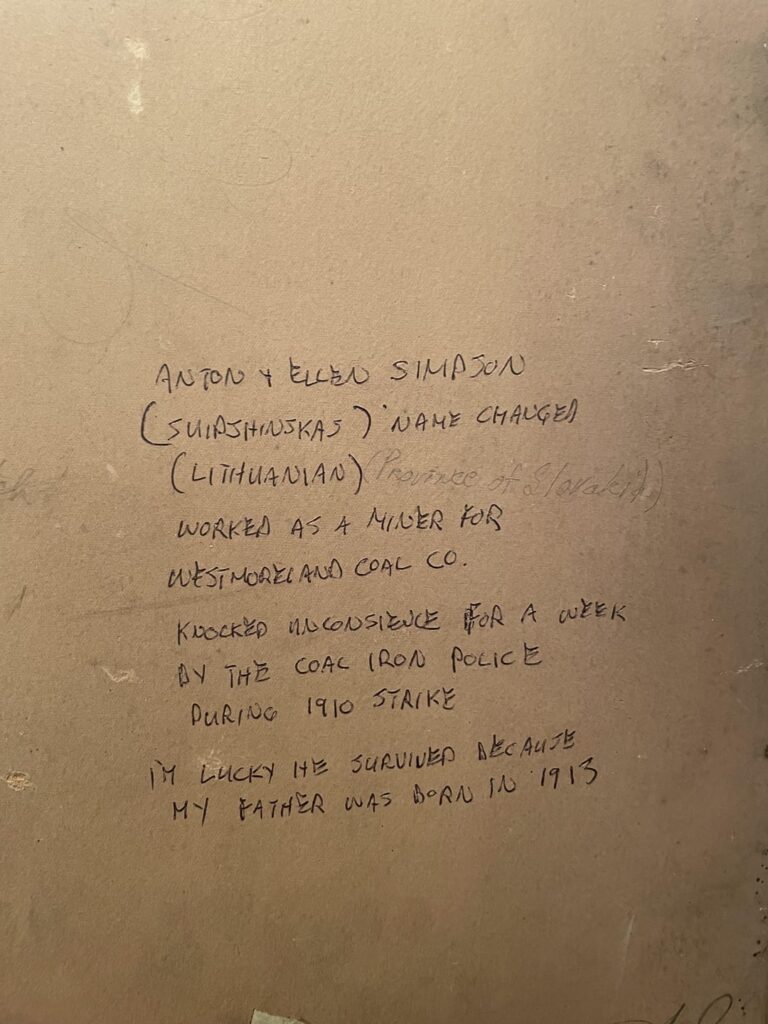 ANTON & ELLEN SIMPSON
(SUIPSHINSKAS) NAME CHANGED
(LITHUANIAN) (Province of Slovakia)
WORKED AS A MINER FOR
WESTMORELAND COAL CO.
KNOCKED UNCONSIENCE FOR A WEEK
BY THE COAL IRON POLICE
DURING 1910 STRIKE
I'M LUCKY HE SURVIVED BECAUSE
MY FATHER WAS BORN IN 1913